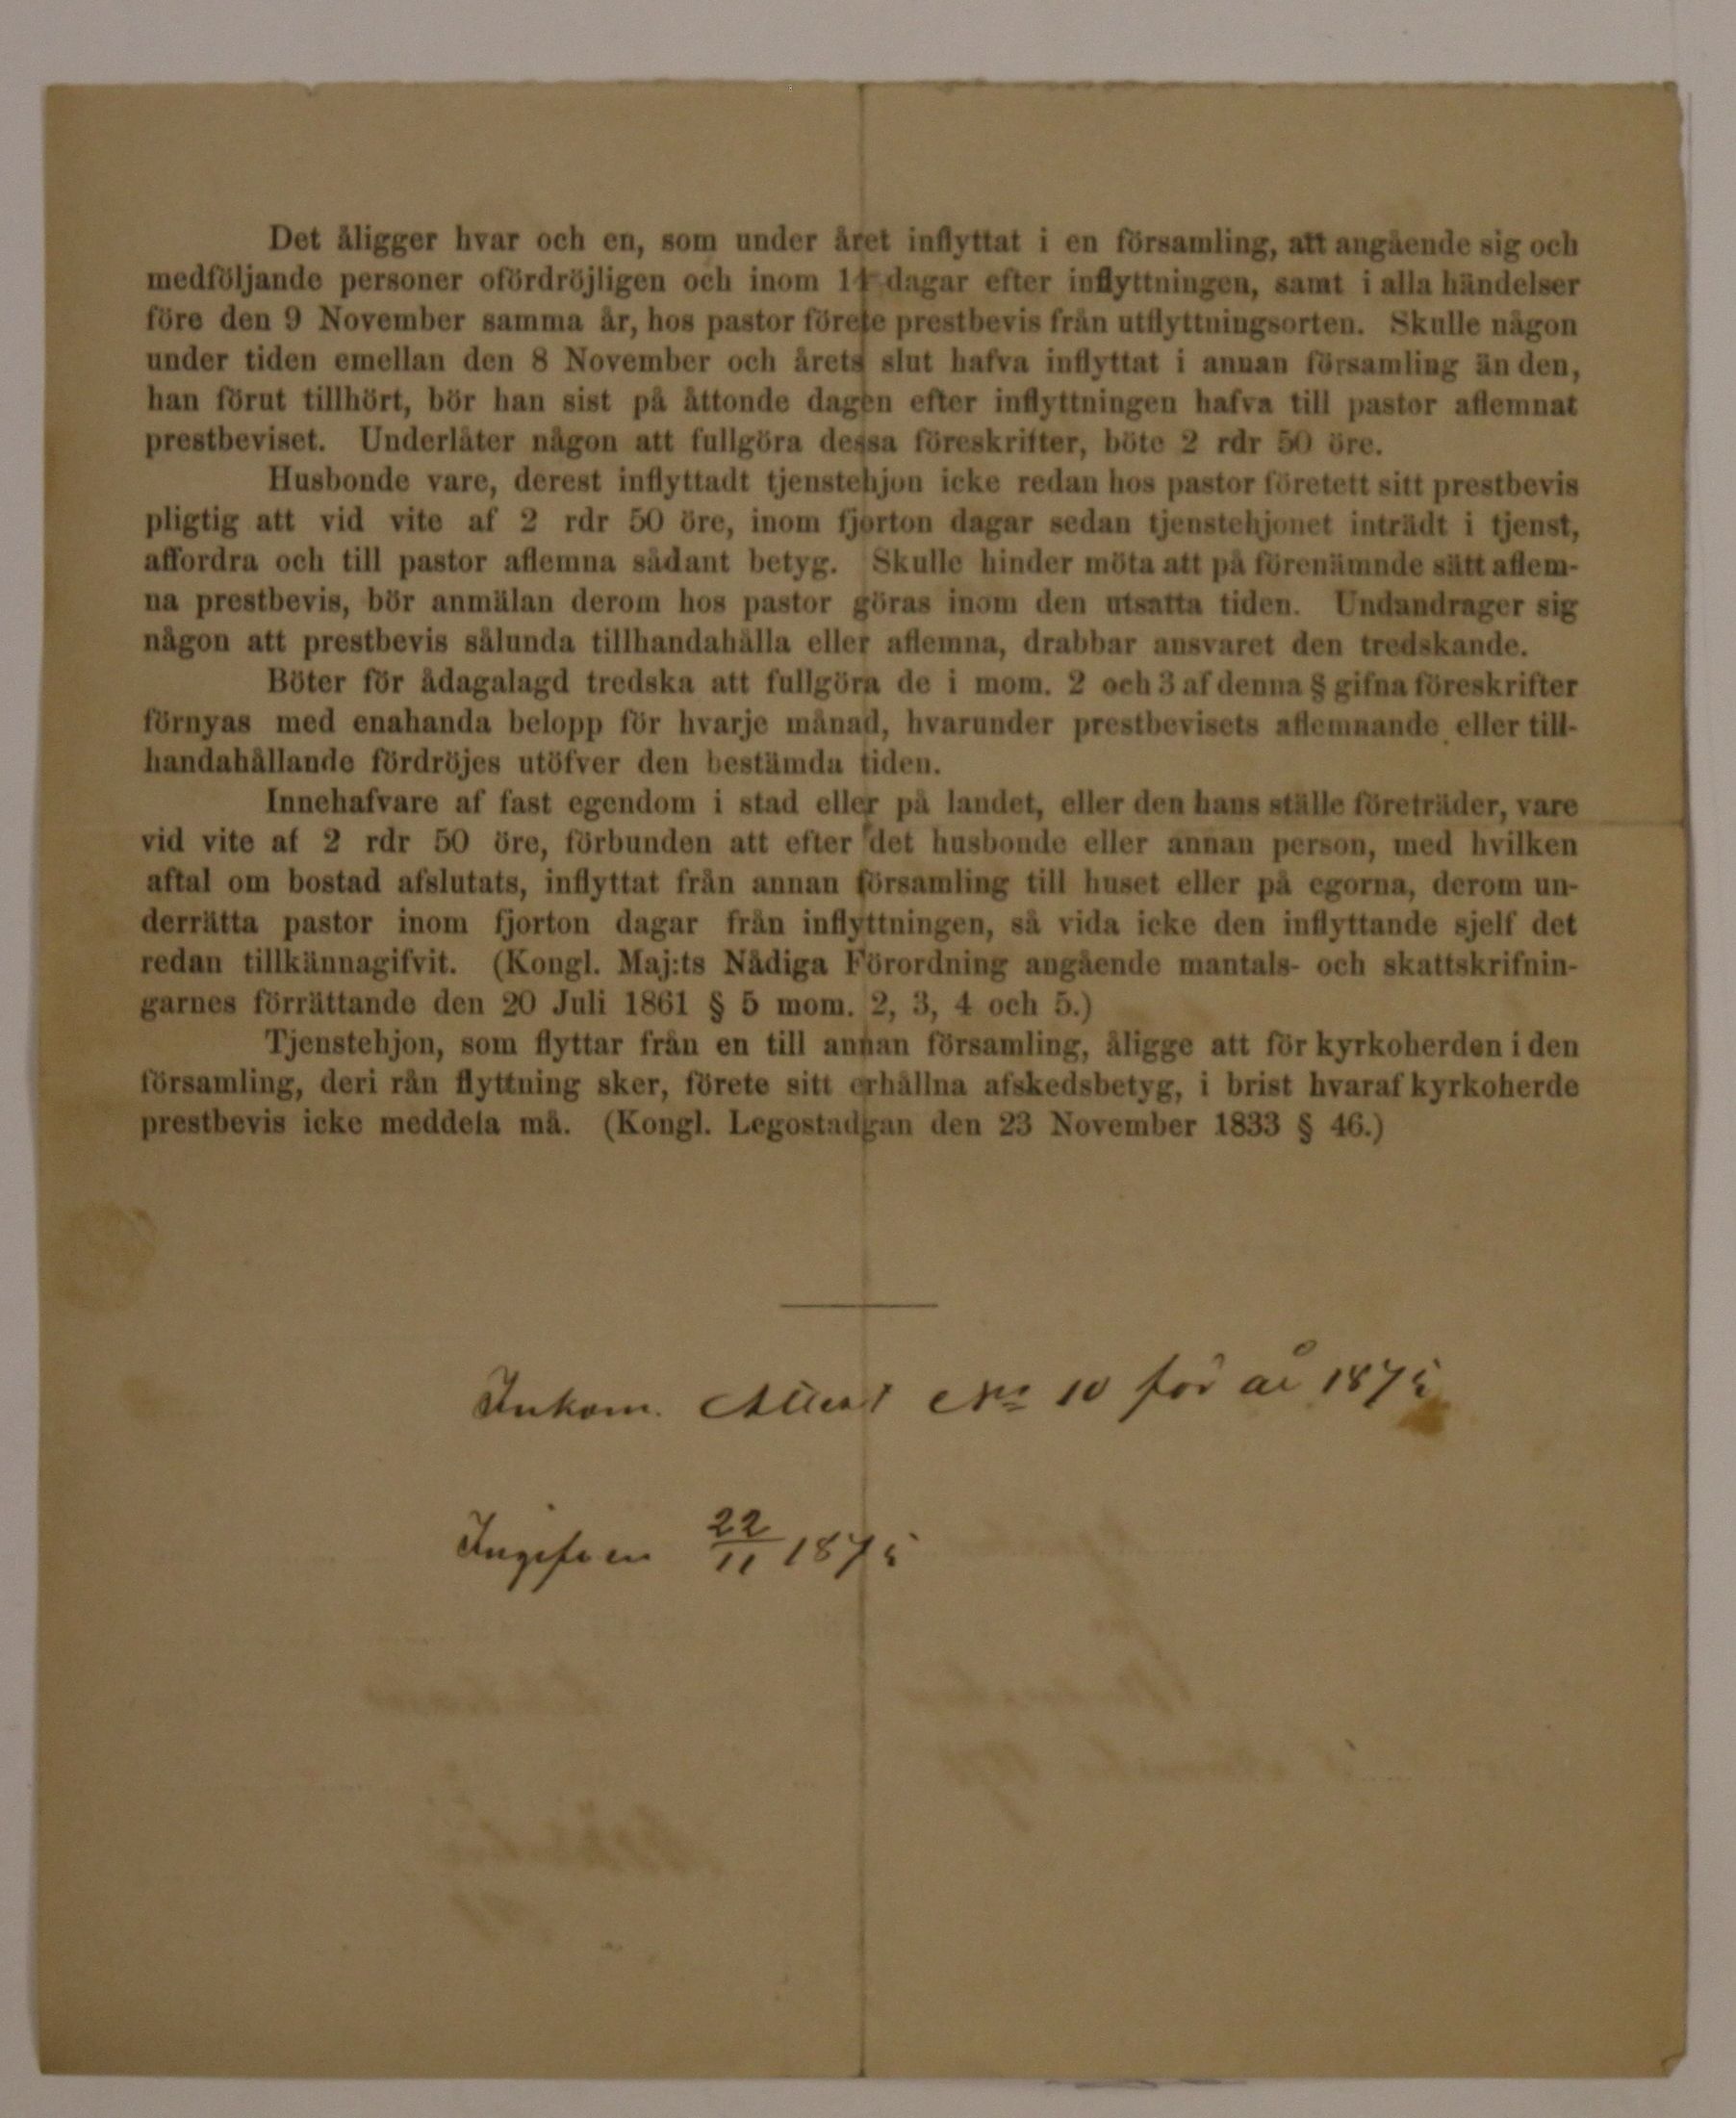 Det åligger hvar och en, som under året inflyttat i en församling, att angående sig och
medföljande personer ofördröjligen och inom 14 dagar efter inflyttningen, samt i alla händelser
före den 9 November samma år, hos pastor förete prestbevis från utflyttningsorten. Skulle någon
under tiden emellan den 8 November och årets slut hafva inflyttat i annan församling än den,
han förut tillhört, bör han sist på åttonde dagen efter inflyttningen hafva till pastor aflemnat
prestbeviset. Underlåter någon att fullgöra dessa föreskrifter, böte 2 rdr 50 öre.
Husbonde vare, derest inflyttadt tjenstehjon icke redan hos pastor företett sitt prestbevis
pligtig att vid vite af 2 rdr 50 öre, inom fjorton dagar sedan tjenstehjonet inträdt i tjenst,
affordra och till pastor aflemna sådant betyg. Skulle hinder möta att på förenämnde sätt aflem-
na prestbevis, bör anmälan derom hos pastor göras inom den utsatta tiden. Undandrager sig
någon att prestbevis sålunda tillhandahålla eller aflemna, drabbar ansvaret den tredskande.
Böter för ådagalagd tredska att fullgöra de i mom. 2 och 3 af denna § gifna föreskrifter
förnyas med enahanda belopp för hvarje månad, hvarunder prestbevisets aflemnande eller till-
handahållande fördröjes utöfver den bestämda tiden.
Innehafvare af fast egendom i stad eller på landet, eller den hans ställe företräder, vare
vid vite af 2 rdr 50 öre, förbunden att efter det husbonde eller annan person, med hvilken
aftal om bostad afslutats, inflyttat från annan församling till huset eller på egorna, derom un-
derrätta pastor inom fjorton dagar från inflyttningen, så vida icke den inflyttande sjelf det
redan tillkännagifvit. (Kongl. Maj:ts Nådiga Förordning angående mantals- och skattskrifnin-
garnes förrättande den 20 Juli 1861 § 5 mom. 2, 3, 4 och 5.)
Tjenstehjon, som flyttar från en till annan församling, åligge att för kyrkoherden i den
församling, deri rån flyttning sker, förete sitt erhållna afskedsbetyg, i brist hvaraf kyrkoherde
prestbevis icke meddela må. (Kongl. Legostadgan den 23 November 1833 § 46.)
Inkom. Attest No 10 för år 1875
Ingifven 22/11 1875